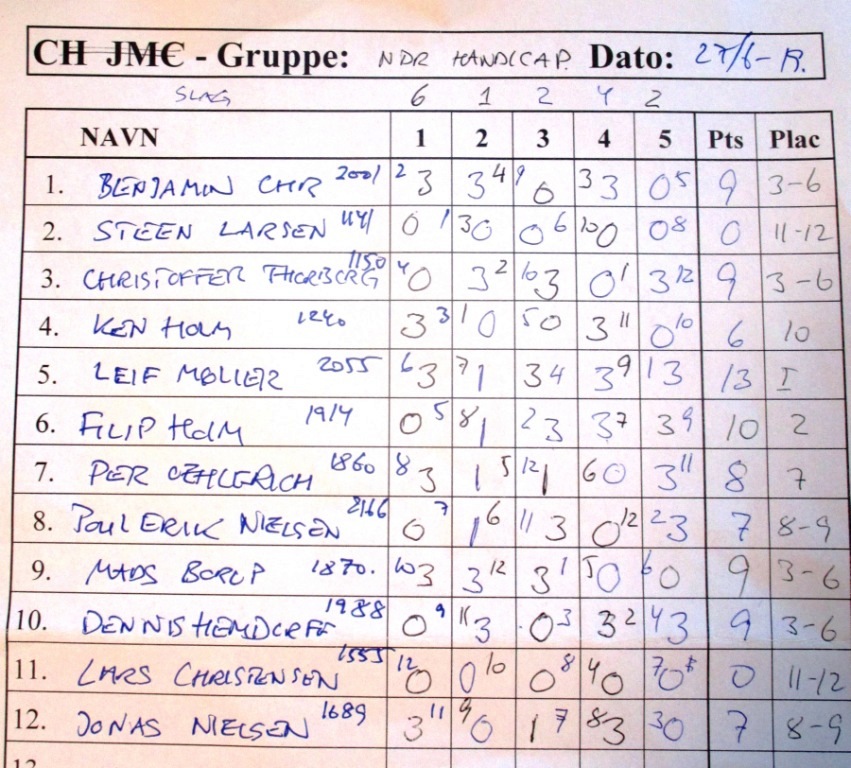 CH JMC - Gruppe: NDR HANDICAP. Dato: 27/6-19.
SLAG 6 1 2 4 2
NAVN 1 2 3 4 5 Pts Plac
1. BENJAMIN CHR 2001 2 3 3 4 9 0 3 3 0 5 9 3-6
2. STEEN LARSEN 1141 0 1 3 0 0 6 10 0 0 8 0 11-12
3. CHRISTOFFER THORBERG 1150 4 0 3 2 10 3 0 1 3 12 9 3-6
4. KEN HOLM 1240 3 3 1 0 5 0 3 11 0 10 6 10
5. LEIF MØLLER 2055 6 3 7 1 3 4 3 9 1 3 13 I
6. FILIP HOLM 1914 0 5 8 1 2 3 3 7 3 9 10 2
7. PER OEHLERICH 1860 8 3 1 5 12 1 6 0 3 11 8 7
8. POUL ERIK NIELSEN 2166 0 7 1 6 11 3 0 12 2 3 7 8-9
9. MADS BORUP 1870. 10 3 3 12 3 1 5 0 6 0 9 3-6
10. DENNIS HEMDORFF 1988 0 9 11 3 0 3 3 2 4 3 9 3-6
11. LARS CHRISTENSEN 1555 12 0 0 10 0 8 4 0 7 0 0 11-12
12. JONAS NIELSEN 1689 3 11 9 0 1 7 8 3 3 0 7 8-9